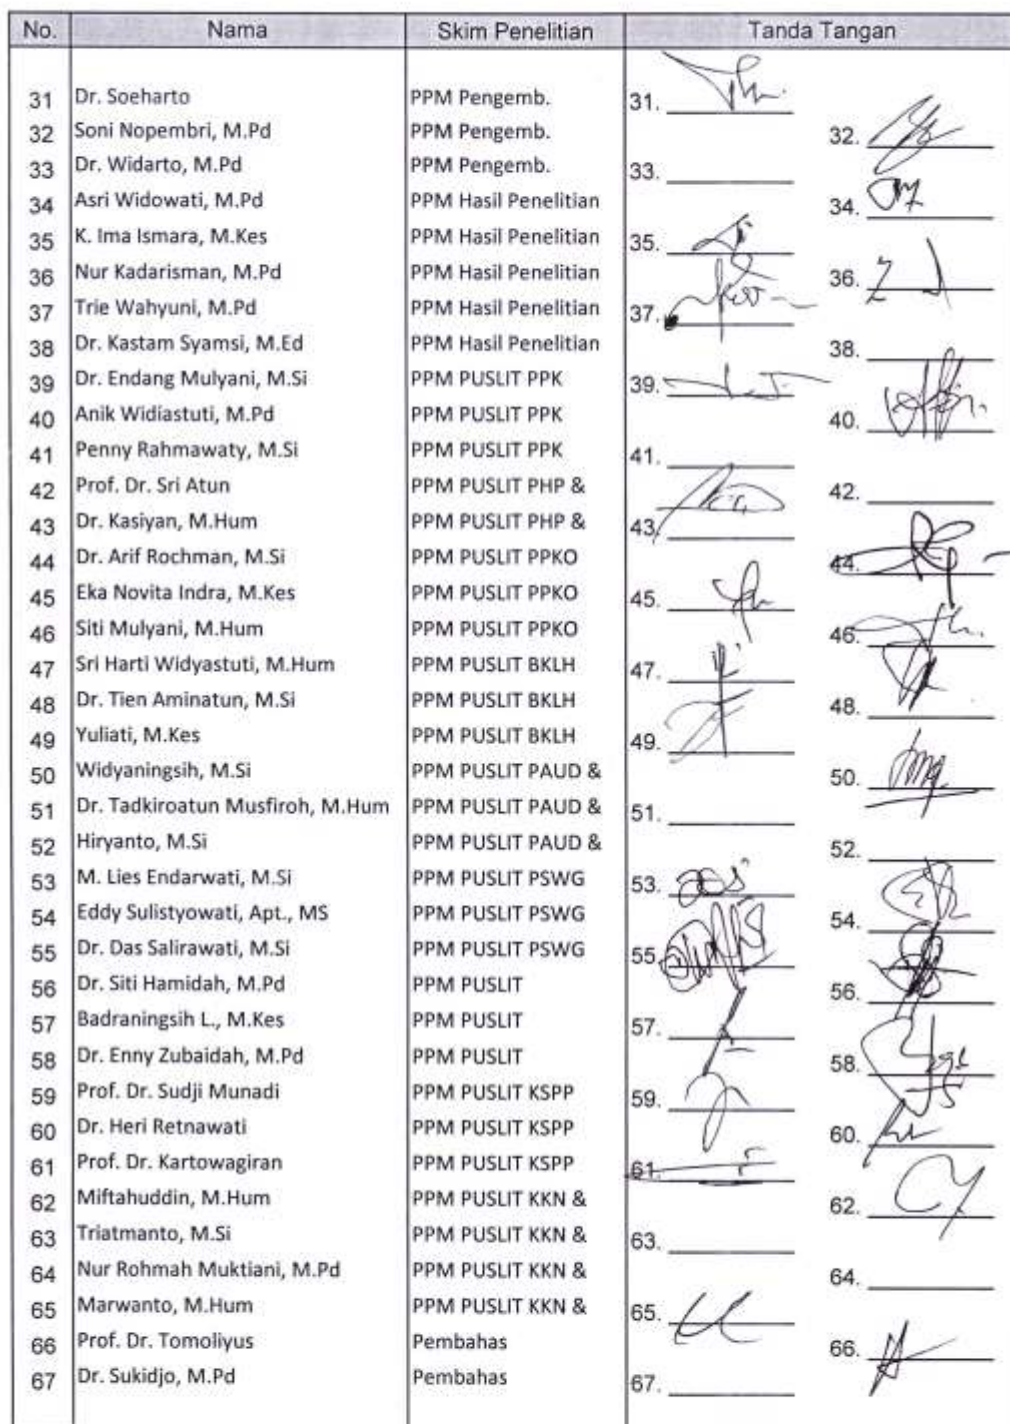 No. Nama Skim Penelitian Tanda Tangan
31 Dr. Soeharto PPM Pengemb. 31.
32 Soni Nopembri, M.Pd PPM Pengemb. 32.
33 Dr. Widarto, M.Pd PPM Pengemb. 33.
34 Asri Widowati, M.Pd PPM Hasil Penelitian 34.
35 K. Ima Ismara, M.Kes PPM Hasil Penelitian 35.
36 Nur Kadarisman, M.Pd PPM Hasil Penelitian 36.
37 Trie Wahyuni, M.Pd PPM Hasil Penelitian 37.
38 Dr. Kastam Syamsi, M.Ed PPM Hasil Penelitian 38.
39 Dr. Endang Mulyani, M.Si PPM PUSLIT PPK 39.
40 Anik Widiastuti, M.Pd PPM PUSLIT PPK 40.
41 Penny Rahmawaty, M.Si PPM PUSLIT PPK 41.
42 Prof. Dr. Sri Atun PPM PUSLIT PHP & 42.
43 Dr. Kasiyan, M.Hum PPM PUSLIT PHP & 43.
44 Dr. Arif Rochman, M.Si PPM PUSLIT PPKO 44.
45 Eka Novita Indra, M.Kes PPM PUSLIT PPKO 45.
46 Siti Mulyani, M.Hum PPM PUSLIT PPKO 46.
47 Sri Harti Widyastuti, M.Hum PPM PUSLIT BKLH 47.
48 Dr. Tien Aminatun, M.Si PPM PUSLIT BKLH 48.
49 Yuliati, M.Kes PPM PUSLIT BKLH 49.
50 Widyaningsih, M.Si PPM PUSLIT PAUD & 50.
51 Dr. Tadkiroatun Musfiroh, M.Hum PPM PUSLIT PAUD & 51.
52 Hiryanto, M.Si PPM PUSLIT PAUD & 52.
53 M. Lies Endarwati, M.Si PPM PUSLIT PSWG 53.
54 Eddy Sulistyowati, Apt., MS PPM PUSLIT PSWG 54.
55 Dr. Das Salirawati, M.Si PPM PUSLIT PSWG 55
56 Dr. Siti Hamidah, M.Pd PPM PUSLIT 56.
57 Badraningsih L., M.Kes PPM PUSLIT 57.
58 Dr. Enny Zubaidah, M.Pd PPM PUSLIT 58.
59 Prof. Dr. Sudji Munadi PPM PUSLIT KSPP 59.
60 Dr. Heri Retnawati PPM PUSLIT KSPP 60.
61 Prof. Dr. Kartowagiran PPM PUSLIT KSPP 61.
62 Miftahuddin, M.Hum PPM PUSLIT KKN & 62.
63 Triatmanto, M.Si PPM PUSLIT KKN & 63.
64 Nur Rohmah Muktiani, M.Pd PPM PUSLIT KKN & 64.
65 Marwanto, M.Hum PPM PUSLIT KKN & 65.
66 Prof. Dr. Tomoliyus Pembahas 66.
67 Dr. Sukidjo, M.Pd Pembahas 67.